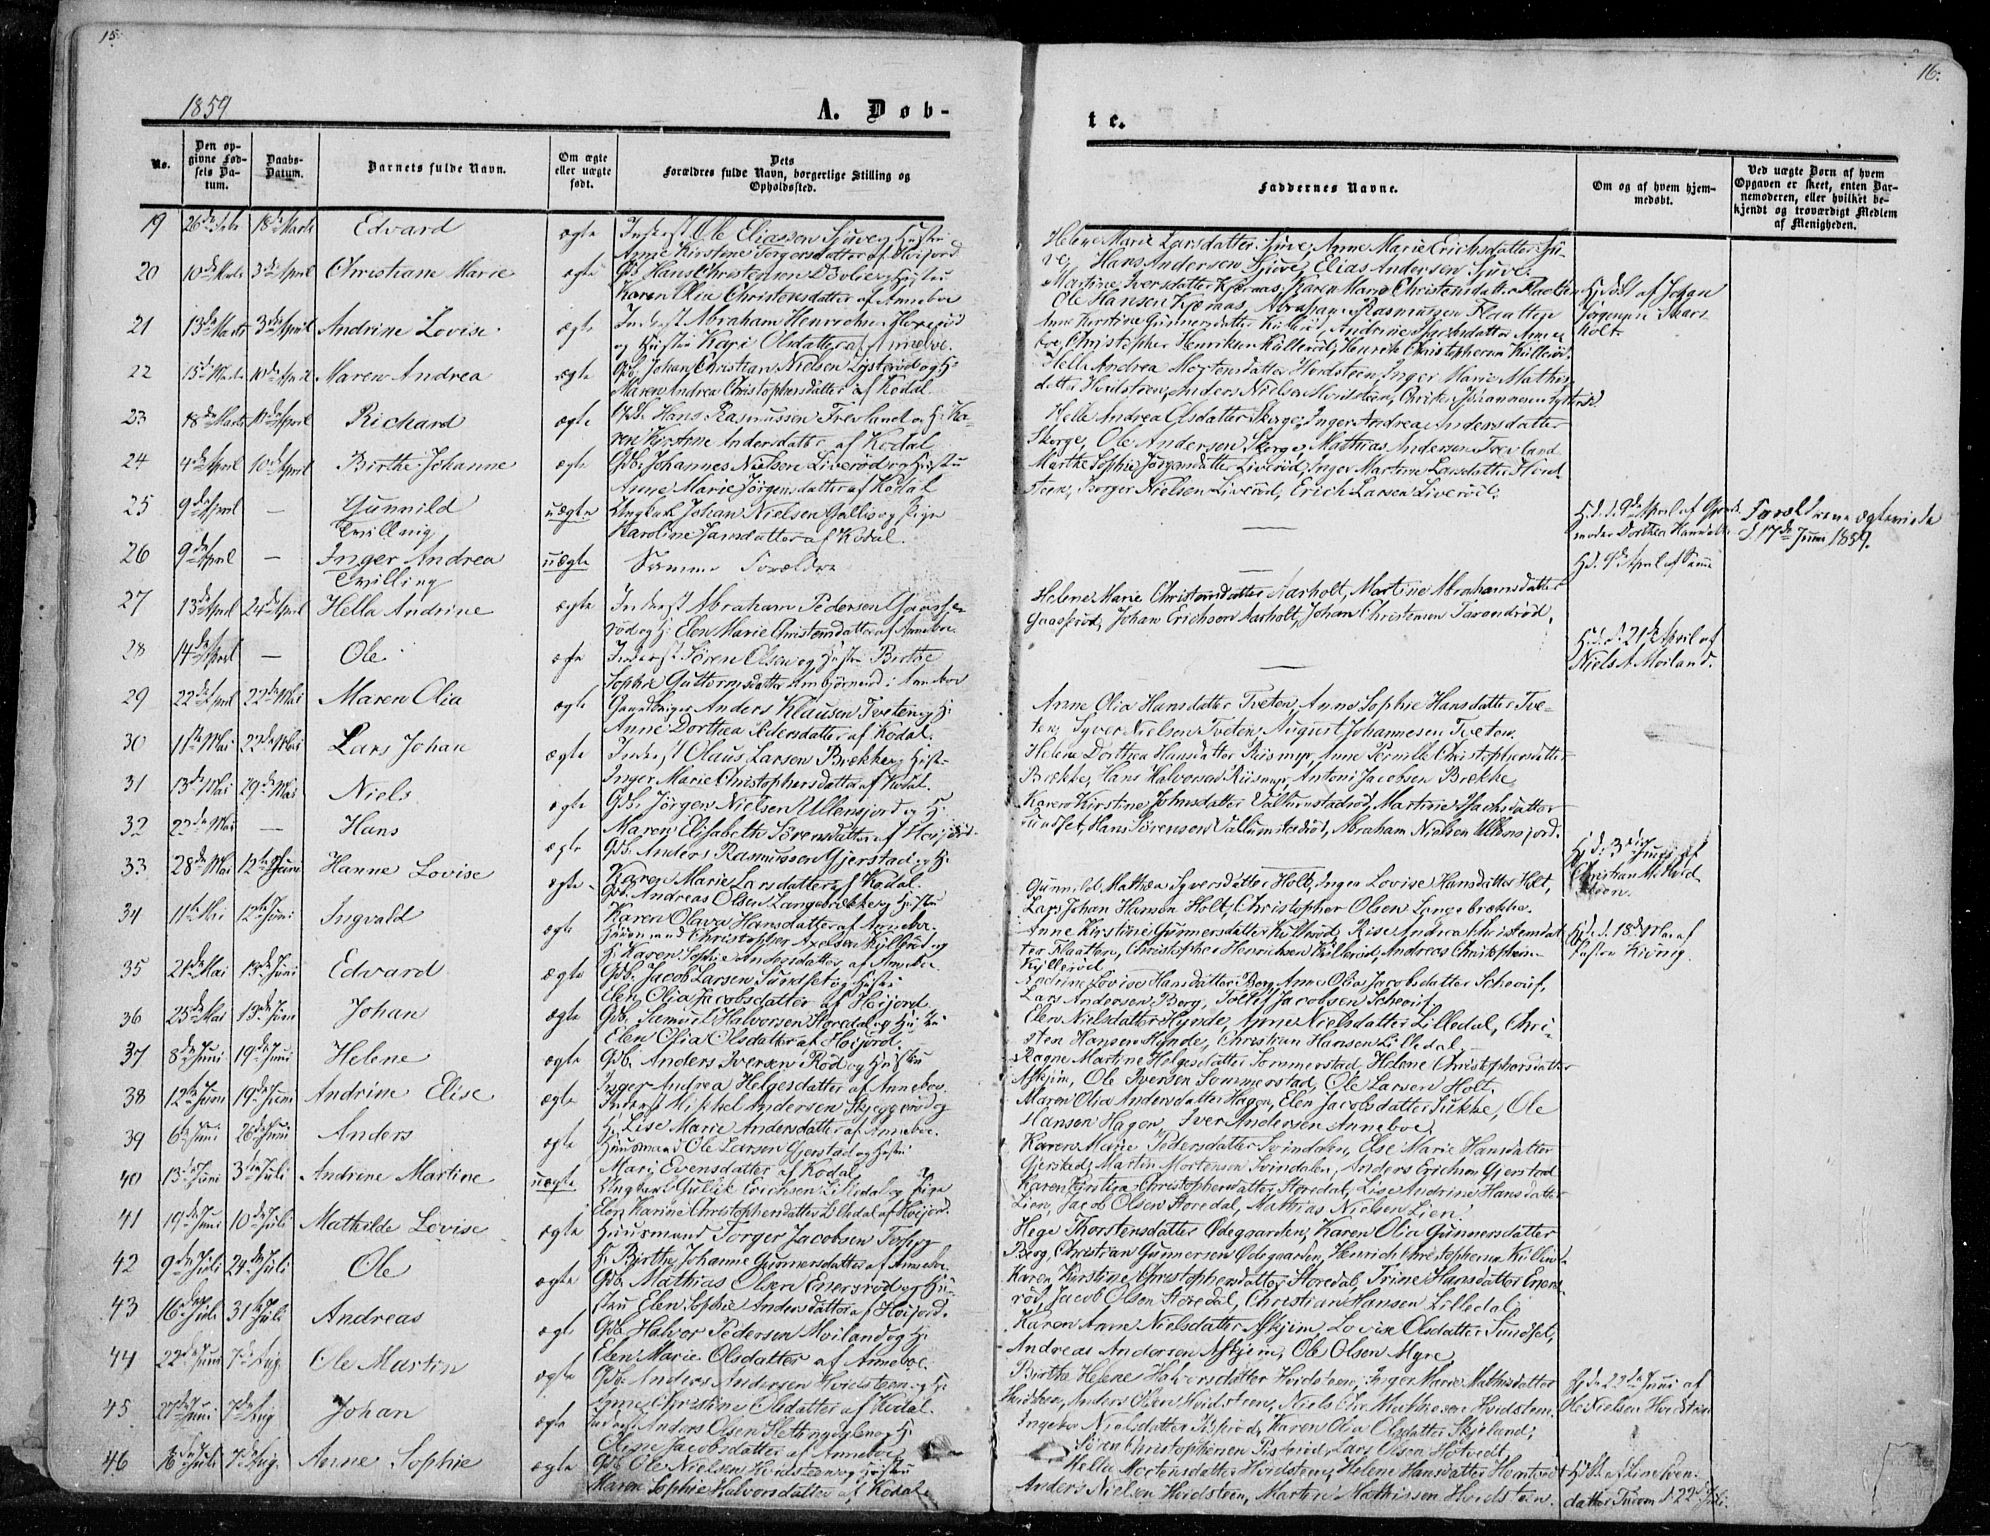 15.
1859
A. Døb-
No.
Den op-
givne Fød-
sels Da-
tum.
Daabs-
Datum.
Barnets fulde Navn.
Om ægte
eller uægte
født.
Dets
Forældres fulde Navn, borgerlige Stilling og
Opholdssted.
19 26de Feb 13de Marts Edvard ægte Inderst Ole Eliassen Sjuve og Hustru
Anne Kirstine Torgersdatter af Hoijord
20 10de Marts 3de April Christiane Marie ægte Gb. Hans Christensen Bolie og Hustru
Karen Olia Christensdatter af Anneboe
21 13de Marts 3de April Andrine Lovise ægte Inderst Abraham Henrichsen
og Hustru Kari Olsdatter af Anneboe.
22 15de Marts 10de April Maren Andrea ægte Gb. Johan Christian Nielsen og H.
Maren Andrea Christophersdatter af Kodal.
23 18de Marts April Richard ægte Gb. Hans Rasmussen Trevland og H. Ka-
ren Kirstine Andersdatter af Kodal.
24 4de April 10de April Birthe Johanne ægte Gb. Johannes Nielsen Liverød og Hustru
Anne Marie Jørgensdatter af Kodal
25 9de April — Gunnild uægte Ungkarl Johan Nielsen Gallis og Pige
Tvilling Karoline Jansdatter af Kodal.
26 9de April — Inger Andrea uægte Samme Forældre
Tvilling
27 13de April 24de April Hella Andrine ægte Inderst Abraham Pedersen Gaasse-
rød og H. Elen Marie Christensdatter af Anneboe.
28 14de April — Ole ægte Inderst Søren Olsen og Hustru Birthe
Sophie Guttormsdatter i Anneboe
29 22de April 22de Mai Maren Olia ægte Gaardbruger Anders Klausen Tveten og H.
Anne Dorthea Pedersdatter af Kodal.
30 11te Mai 22de Mai Lars Johan ægte Inderst Olaus Larsen Brække og Hustru
Inger Marie Christophersdatter af Kodal.
31 13de Mai 29de Mai Niels ægte Gb. Jørgen Nielsen Ullensjord og H.
Maren Elisabeth Sørensdatter af Hoijord.
32 22de Mai — Hans ægte Gb. Anders Rasmussen Gjerstad og H.
Karen Marie Larsdatter af Kodal.
33 28de Mai 12te Juni Hanne Lovise ægte Gb. Andreas Olsen Langebrække og Hustru
Karen Olava Hansdatter af Anneboe.
34 11te Mai 12te Juni Ingvald ægte Huusmand Christopher Axelsen Kyllerød og
H. Karen Sophie Andersdatter af Anneboe.
35 21de Mai 13de Juni Edvard ægte Gb. Jacob Larsen Sundset og Hustru
Elen Olia Jacobsdatter af Hoijord.
36 25de Mai 13de Juni Johan ægte Gb. Samuel Halvorsen Storedal og Hustru
Elen Olia Olsdatter af Hoijord.
37 8de Juni 19de Juni Helene ægte Gb. Anders Iversen Rød og Hustru
Inger Andrea Helgesdatter af Anneboe.
38 12te Juni 19de Juni Andrine Elise ægte Inderst Michel Andersen Skjeggerød og
H. Lise Marie Andersdatter af Anneboe.
39 6te Juni 26de Juni Anders ægte Huusmand Ole Larsen Gjerstad og Hustru
Mari Evensdatter af Kodal
40 13de Juni 3die Juli Andrine Martine uægte Ungkarl Gullik Erichsen Lilledal og Pige
Elen Karine Christophersdatter Lilledal af Hoijord.
41 19de Juni 10de Juli Mathilde Lovise ægte Huusmand Torger Jacobsen
H. Birthe Johanne Gunnersdatter af Anneboe.
42 9de Juli 24de Juli Ole ægte Gb. Mathias Olsen Enersrød og Hu-
stru Elen Sophie Andersdatter af Hoijord.
43 16de Juli 31te Juli Andreas ægte Gb. Halvor Pedersen Moiland og H.
Elen Marie Olsdatter af Anneboe.
44 22de Juni 7de Aug. Ole Martin ægte Gb. Anders Andersen Hvidsteen og H.
Anne Christine Olsdatter af Kodal.
45 27de Juni 7de Aug Johan ægte Inderst Anders Olsen og H.
Oline Jacobsdatter af Anneboe.
46 16de Juli 7de Aug. Anne Sophie ægte Gb. Ole Nielsen Hvidsteen og Hustru
Karen Sophie Halvorsdatter af Kodal.
16.
te.
Faddernes Navne.
Om og af hvem hjem-
medøbt.
Ved uægte Børn af hvem
Opgaven er skeet, enten Bar-
nemoderen, eller hvilket be-
kjendt og troværdigt Medlem
af Menigheden.
Helene Marie Larsdatter Sjuve, Anne Marie Erichsdatter Sju-
ve, Hans Andersen Sjuve, Elias Andersen Sjuve.
Martine Iversdatter Kjærnaas, Karen Marie Christensdatter Flaatten
Ole Hansen Kjærnaas, Abraham Rasmussen Flaatten
Hj. døbt af Johan
Jørgensen Skars-
holt.
Anne Kirstine Gunnersdatter Kullerød, Andrine Isacksdatter Anne-
boe, Christopher Henriksen Kullerød, Henrik Christophersen Kullerød.
Helle Andrea Mortensdatter Hvidsteen, Inger Marie Mathis-
datter Hvidsteen, Anders Nielsen Hvidsteen, Christen Johannesen
Helle Andrea Olsdatter Skorge, Inger Andrea Andersdatter
Skorge, Ole Andersen Skorge, Mathias Andersen Trevland
Marthe Sophie Jørgensdatter Liverød, Inger Martine Larsdatter Hvid-
steen, Borger Nielsen Liverød, Erich Larsen Liverød.
— Hj. d. 9de April af Gjord-
emoder Dorthea Hansdtr. Forældrene ægteviede
d. 17de Juni 1859.
— Hj. d. 9de April af Samme
Helene Marie Christensdatter Aarholt, Martine Abrahamsdatter
Gaasserød, Johan Erichsen Aarholt, Johan Christensen Taranrød.
— Hj. d. 21de April af
Niels A. Moiland.
Anne Olia Hansdatter Tveten, Anne Sophie Hansdatter Tve-
ten, Syver Nielsen Tveten, August Johannesen Tveten.
Helene Dorthea Hansdatter Riismyr, Anne Pernille Christophersdatter
Brække, Hans Halvorsen Riismyr, Antoni Jacobsen Brække.
Karen Kirstine Johnsdatter Vallumstadrød, Martine Isachsdatter
Sundset, Hans Sørensen Vallumstadrød, Abraham Nielsen Ullensjord.
— Hj. d. 3die Juni af
Christian M. Hvid-
steen.
Gunnild Mathea Syversdatter Holt, Inger Lovise Hansdatter Holt,
Lars Johan Hansen Holt, Christopher Olsen Langebrække.
Anne Kirstine Gunnersdatter Kullerød, Risa Andrea Christensdat-
ter Flaatten, Christopher Henrichsen Kullerød, Andreas Christophersen
Kyllerød
Hj. d. 18de Mai af
Pastor Kiønig.
Andrine Lovise Hansdatter Berg, Anne Olia Jacobsdatter Scherif,
Lars Andersen Berg, Tollef Jacobsen Scherif.
Elen Nielsdatter Hynde, Anne Nielsdatter Lilledal, Chri-
sten Hansen Hynde, Christian Hansen Lilledal
Ragne Martine Helgesdatter Sommerstad, Helene Christophersdatter
Askjem, Ole Iversen Sommerstad, Ole Larsen Holt.
Maren Olia Andersdatter Hagen, Elen Jacobsdatter Sukke, Ole
Hansen Hagen, Iver Andersen Anneboe.
Karen Marie Pedersdatter Svindalen, Else Marie Hansdatter
Gjerstad, Martin Mortensen Svindalen, Anders Erichsen Gjerstad
Karen Kirstine Christophersdatter Storedal, Lise Andrine Hansdatter
Lien, Jacob Olsen Storedal, Mathias Nielsen Lien.
Hege Thorstensdatter Ødegaarden, Karen Olia Gunnersdatter
Berg, Christian Gunnersen Ødegaarden, Henrich Christophersen Kullerød.
Karen Kirstine Christophersdatter Storedal, Trine Hansdatter Eners-
rød, Jacob Olsen Storedal, Christian Hansen Lilledal.
Karen Anne Nielsdatter Askjem, Lovise Olsdatter Sundset,
Andreas Andersen Askjem, Ole Olsen Myre.
Birthe Helene Halvorsdatter Hvidsteen, Inger Marie Mathisdatter
Hvidsteen, Anders Olsen Hvidsteen, Niels Chr. Mathisen Hvidsteen.
Hj. d. 22de Juni af
Ole Nielsen Hvidsteen
Ingebor Nielsdatter Pisserød, Karen Olia Olsdatter Skjelland,
Søren Christophersen Pisserød, Lars Olsen Hotvedt.
Helle Mortensdatter Hvidsteen, Helene Hansdatter
Anders Nielsen Hvidsteen, Martin Mathissen Hvidsteen.
Hj. d. af Line Sven-
datter Tuven d. 22de Juli.